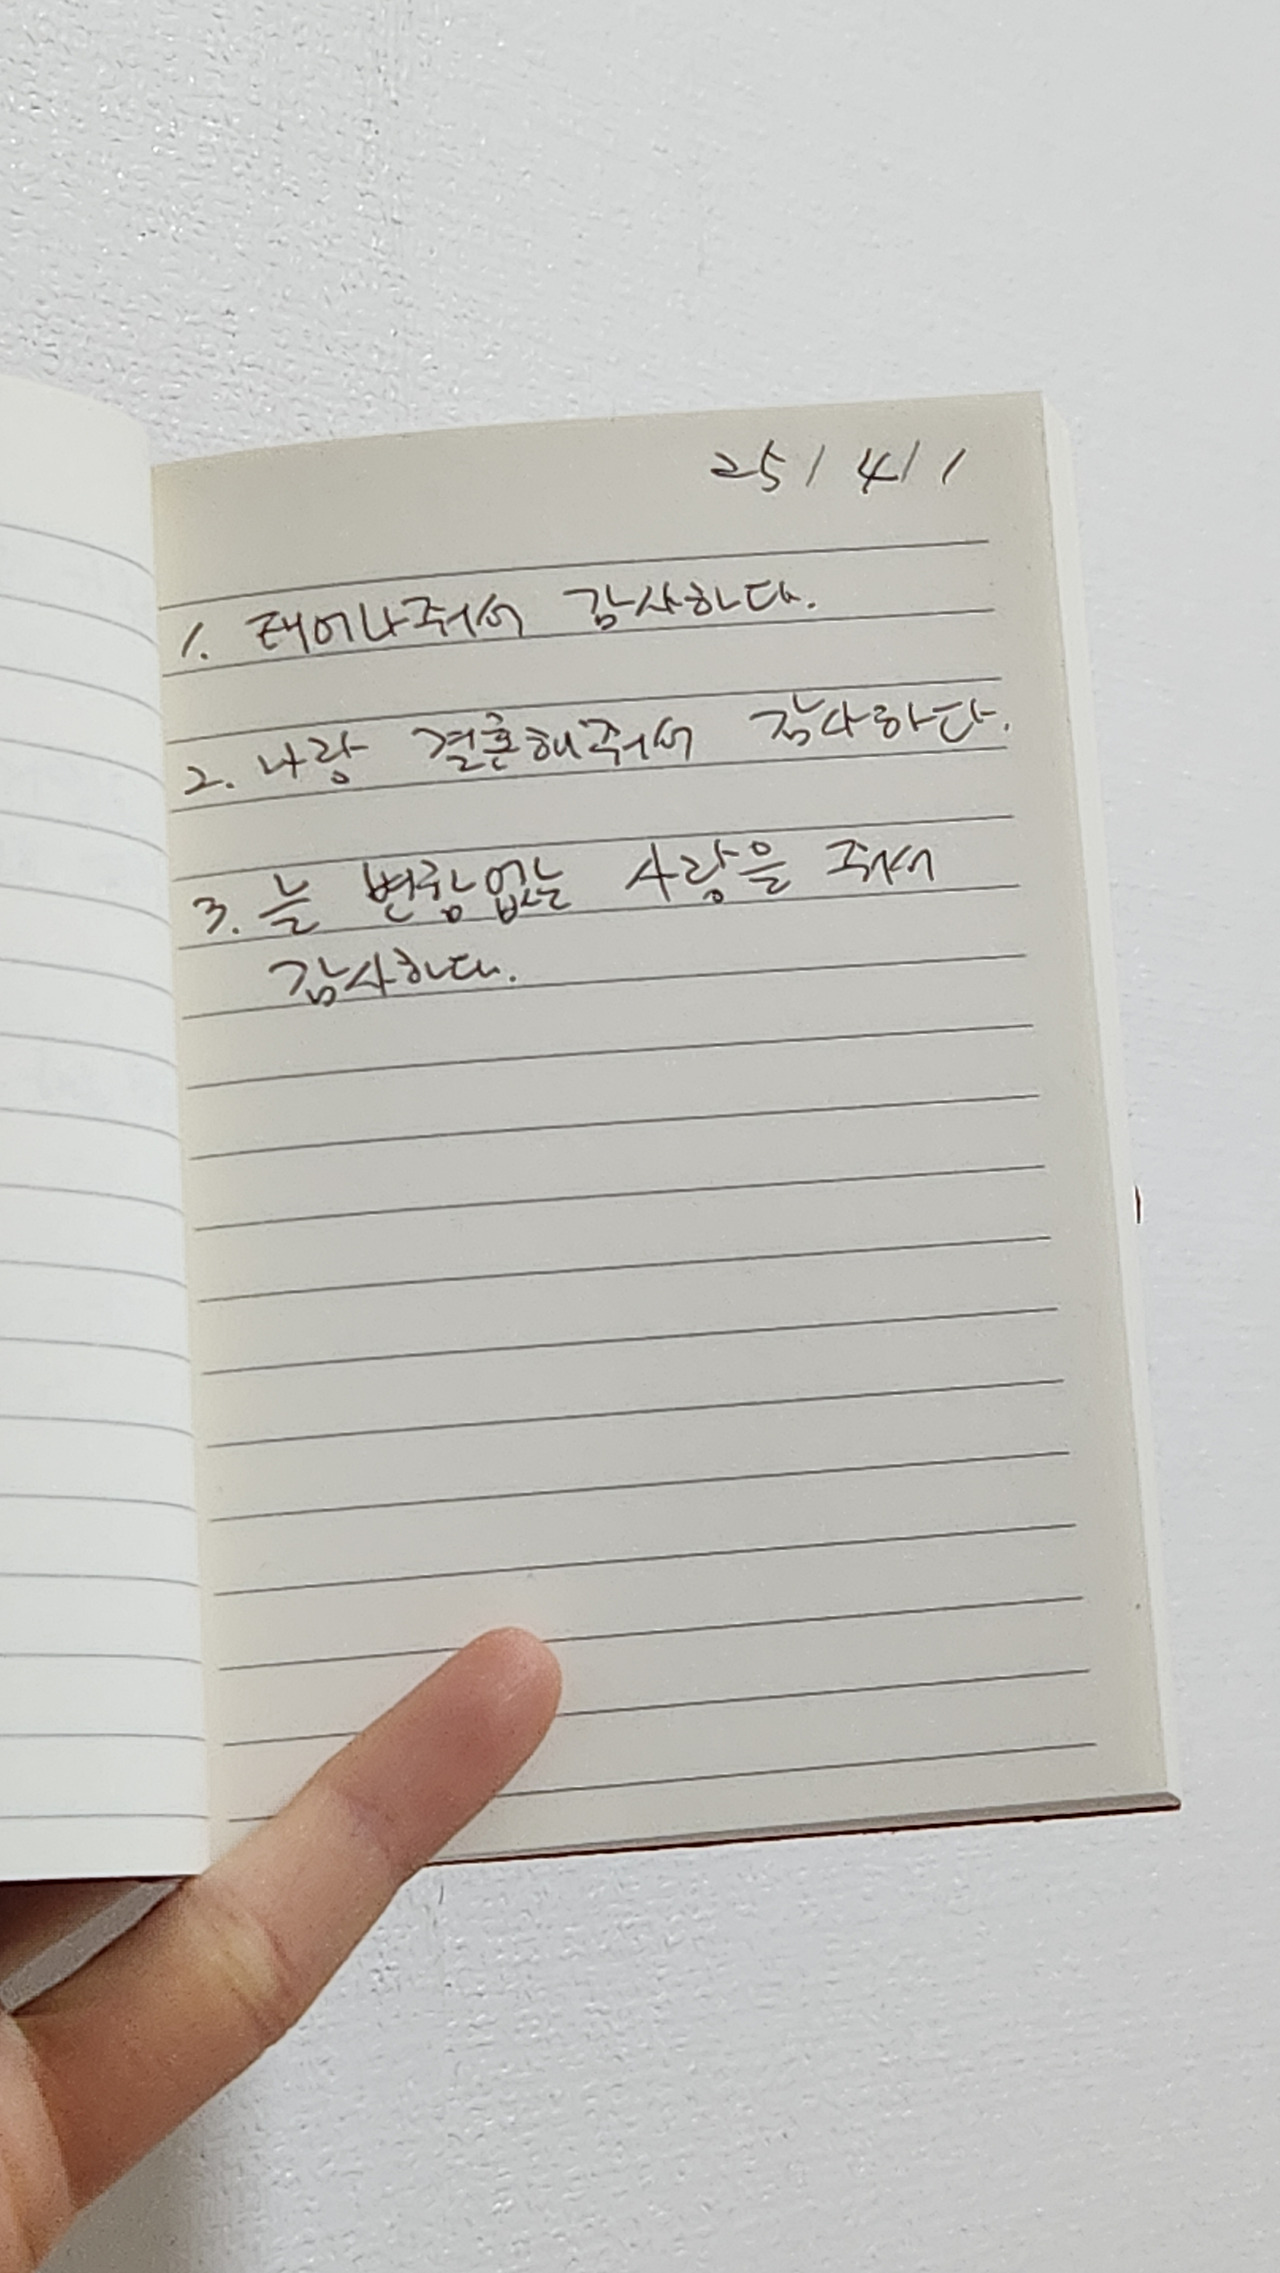 25/4/1
1. 태어나줘서 감사하다.
2. 나랑 결혼해줘서 감사하다.
3. 늘 변함없는 사랑을 줘서
감사하다.